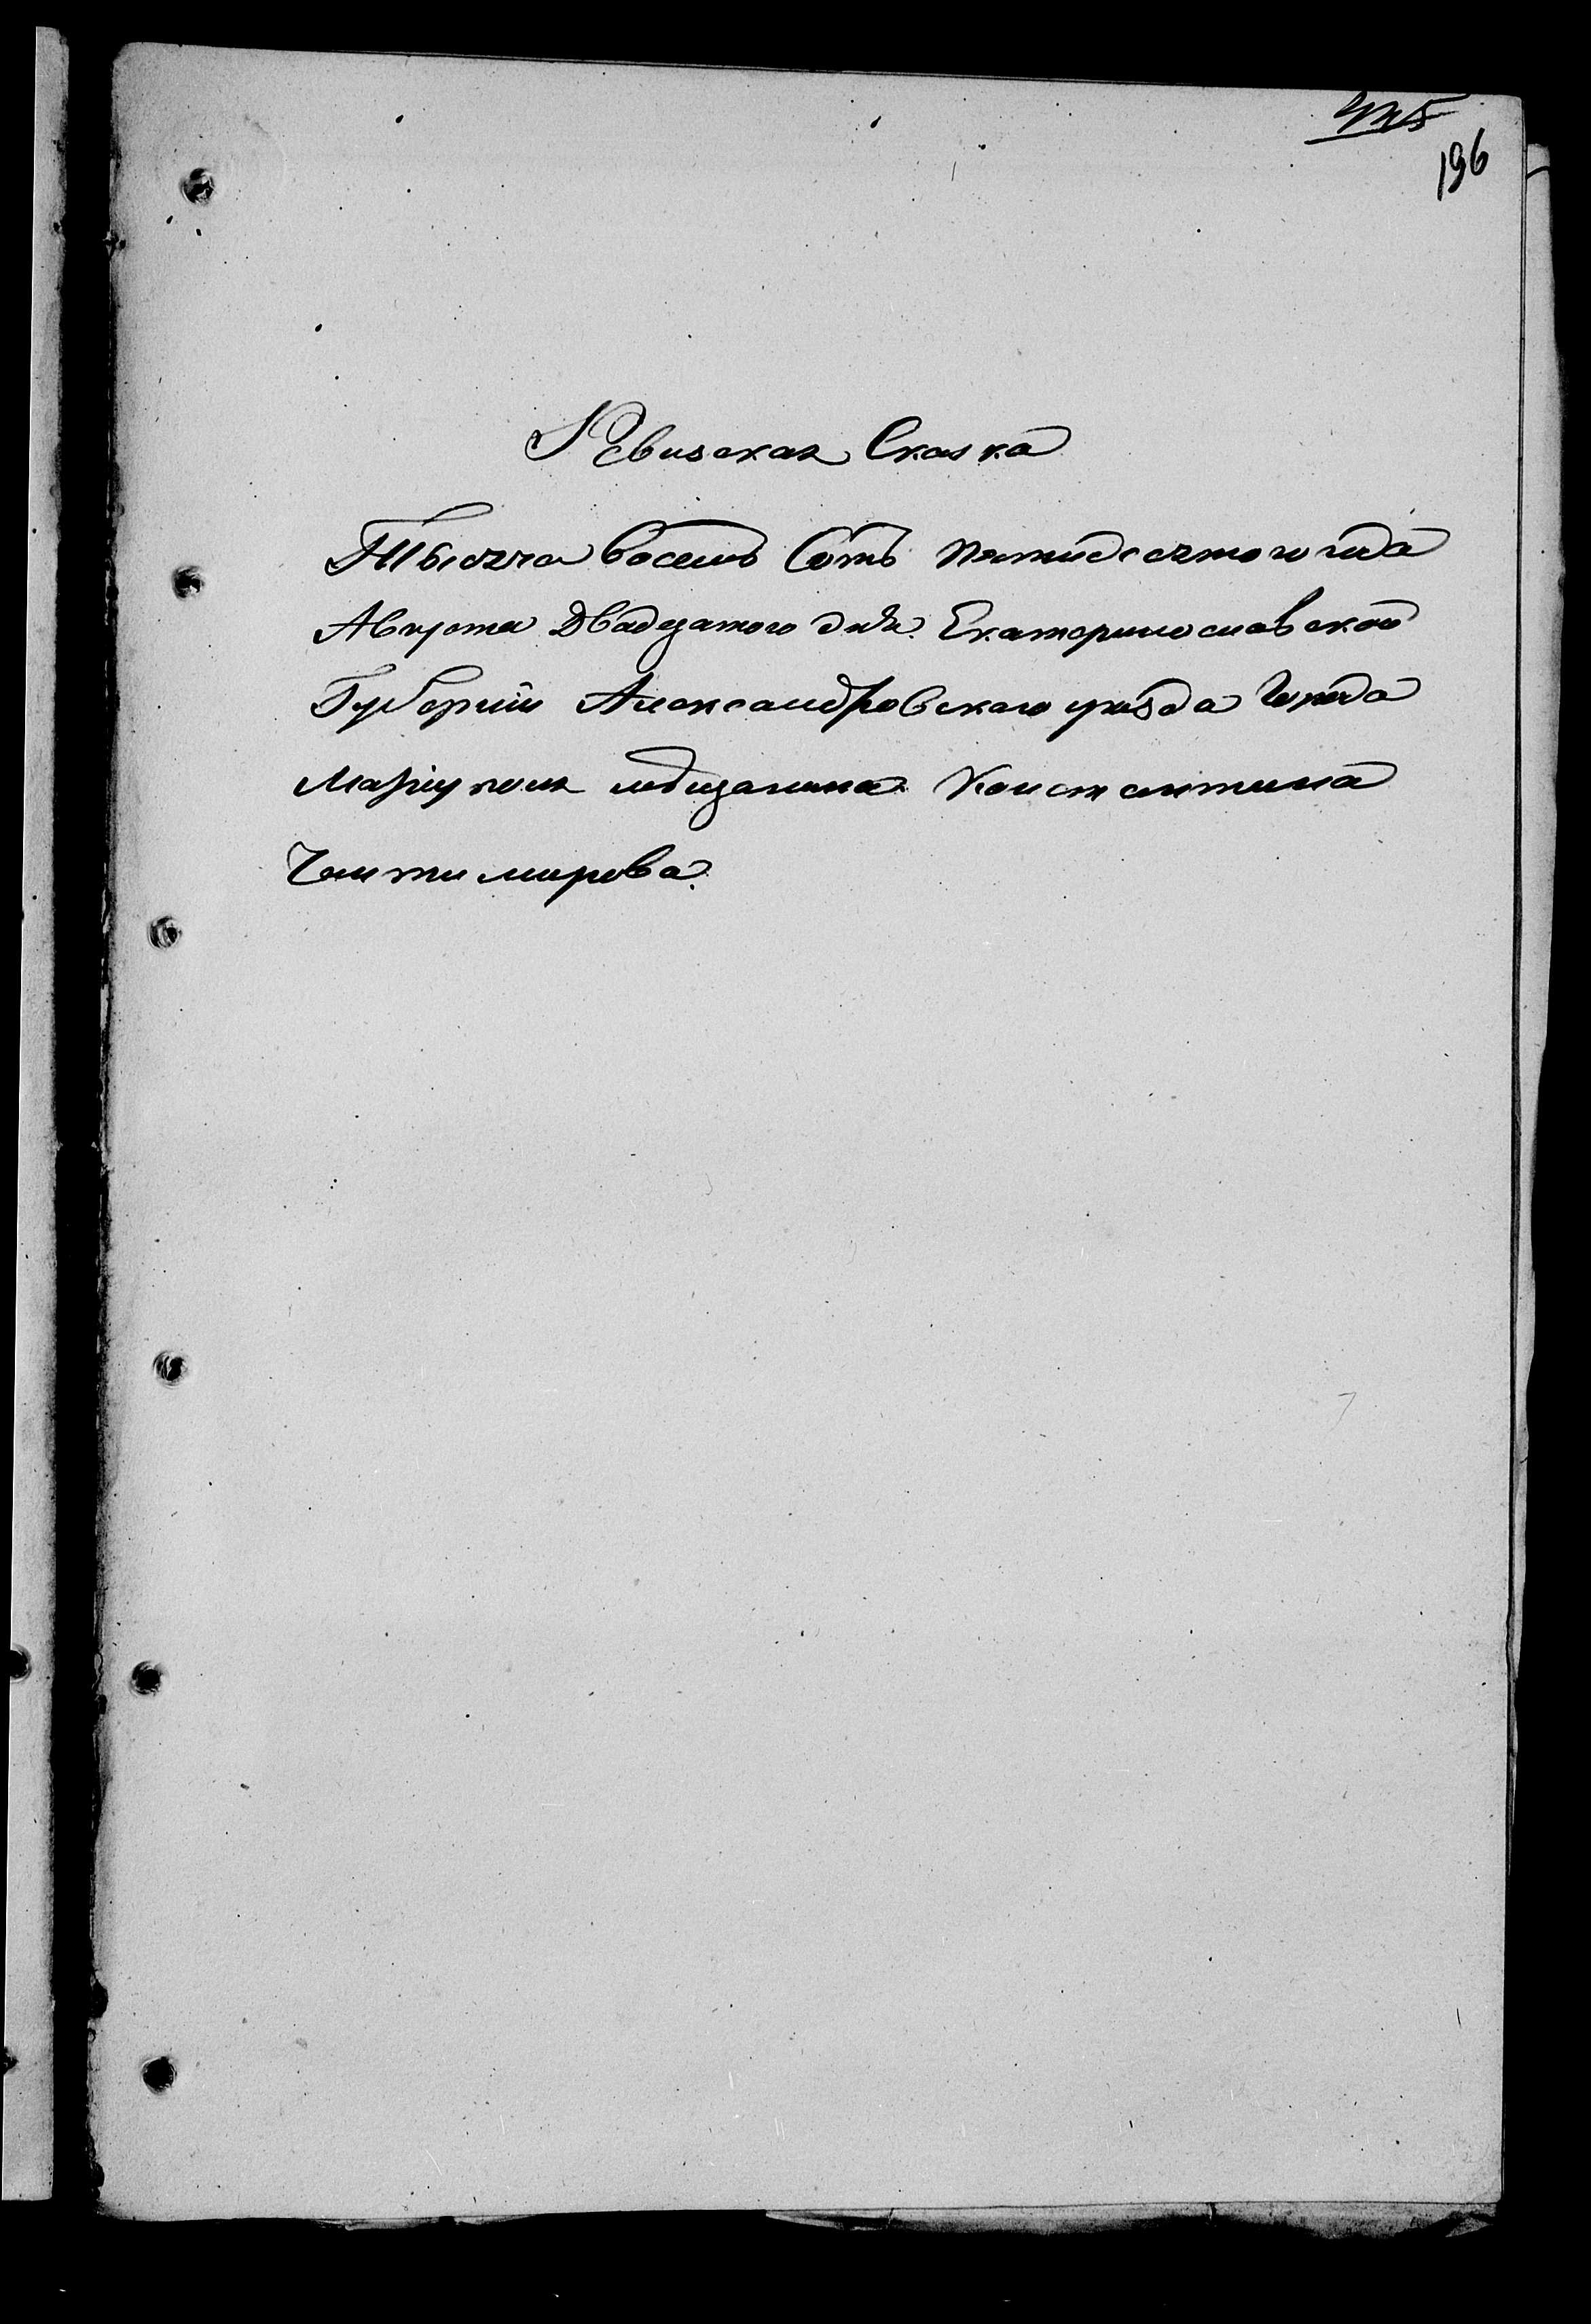 196
Ревизская Сказка
Тысяча восемь Сотъ пятидесятого года
Августа Двадцатого дня. Екатеринославской
Губернии Александровского уезда Города
Мариуполя мещанина Константина